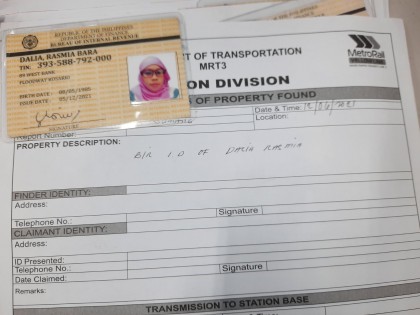 REPUBLIC OF THE PHILIPPINES
DEPARTMENT OF FINANCE
BUREAU OF INTERNAL REVENUE
DALIA, RASMIA BARA
TIN: 393-588-792-000
BIRTH DATE
ISSUE DATE 05/12/2021
SIGNATURE
T OF TRANSPORTATION
MRT3
MetroRail
ON DIVISION
OF PROPERTY FOUND
Date & Time:
Location:
Report Number
PROPERTY DESCRIPTION:
BIR I.D OF DALIA RASMIA
FINDER IDENTITY:
Address:
Telephone No.: Signature
CLAIMANT IDENTITY:
Address:
ID Presented:
Telephone No.: Signature
Date Claimed:
Remarks:
TRANSMISSION TO STATION BASE